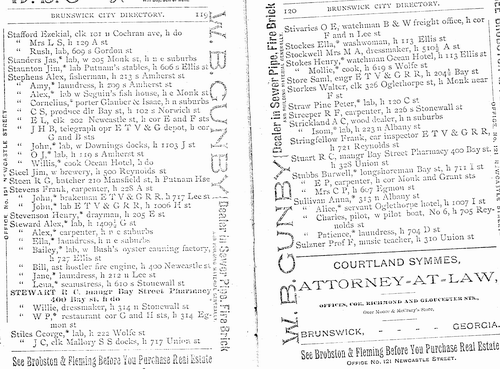 BRUNSWICK CITY DIRECTORY. 119
Stafford Ezekial, clk 101 n Cochran ave, h do
" Mrs L S, h 129 A st
" Rush, lab, h 609 s Gordon st
Standers Jas,* lab, w 205 Monk st, h n e suburbs
Staunton Jim,* lab Putnam's stables, h 606 s Ellis st
Stephens Alex, fisherman, h 213 s Amherst st
" Amy,* laundress, h 209 s Amherst st
" Alex,* lab w Seguit's fish house, h c Monk st
" Cornelius,* porter Glauber & Isaac, h n suburbs
" C S, produce dlr Bay st, h 102 s Norwich st
" E L, clk 202 Newcastle st, h cor E and F sts
" J H B, telegraph opr E T V & G depot, h cor G and B sts
" John,* lab, w Downings docks, h 1103 J st
" O J,* lab, h 119 s Amherst st
" Willis,* cook Ocean Hotel, h do
Steel Jim, w brewery, h 500 Reynolds st
Steen R G, hatcher 210 Mansfield st, h Putnam Hse
Stevens Frank, carpenter, h 228 A st
" John,* brakeman E T V & G RR, h 717 Lee st
" John,* lab E T V & G RR, h 1006 H st
Stevenson Henry,* drayman, h 205 E st
Steward Alex,* lab, h 1409½ G st
" Alex,* carpenter, h n e suburbs
" Ella,* laundress, h n e suburbs
" Bailey,* lab, w Bush's oyster canning factory, h 727 Ellis st
" Bill, ast hostler fire engine, h 400 Newcastle st
" Jane,* laundress, h 212 n Lee st
" Lena,* seamstress, h 610 s Stonewall st
STEWART R C, mangr Bay Street Pharmacy 400 Bay st, h do
" Willie, dressmaker, h 314 n Stonewall st
" W P,* restaurant cor G and H sts, h 314 Egmont st
Stiles George,* lab, h 222 Wolfe st
" J C, clk Mallory S S docks, h 717 Union st
See Brobston & Fleming Before You Purchase Real Estate
OFFICE No. NEWCASTLE STREET
W. B. GUNBY
Dealer in Sewer Pipe, Fire Brick
120 BRUNSWICK CITY DIRECTORY.
Stivaries O E, watchman B & W freight office, h cor F and n Lee st
Stockes Ella,* washwoman, h 113 Ellis st
Stockwell Mrs M A, dressmaker, h 510½ A st
Stokes Henry,* watchman Ocean Hotel, h 113 Ellis st
" Mollie,* cook, h 619 s Wolfe st
Storey Saml, engr E T V & G R R, h 204½ Bay st
Storks Walter, clk 326 Oglethorpe st, h Monk near F st
Straw Pine Peter,* lab, h 120 C st
Streeper R F, carpenter, h 226 s Stonewall st
Strickland A C, wood dealer, h n suburbs
" Isom,* lab, h 223 n Albany st
Stringfellow Frank, car inspector E T V & G R R, h 721 Reynolds st
Stuart R C, mangr Bay Street Pharmacy 400 Bay st, h 328 Union st
Stubbs Burwell,* longshoreman Bay st, h 711 I st
" E P, carpenter, h cor Monk and Grant sts
" Mrs C P, h 607 Egmont st
Sullivan Anna,* h 313 n Albany st
" Alice,* servant Oglethorpe hotel, h 1007 I st
" Charles, pilot, w pilot boat No 6, h 705 Reynolds st
" Patience,* laundress, h 704 D st
Sulzner Prof F, music teacher, h 310 Union st
COURTLAND SYMMES,
ATTORNEY-AT-LAW,
OFFICES, COR. RICHMOND AND GLOUCESTER STS.,
BRUNSWICK, - - - - GEORGIA.
See Brobston & Fleming Before You Purchase Real Estate
OFFICE No. 121 NEWCASTLE STREET.
W. B. GUNBY
Dealer in Sewer Pipe, Fire Brick